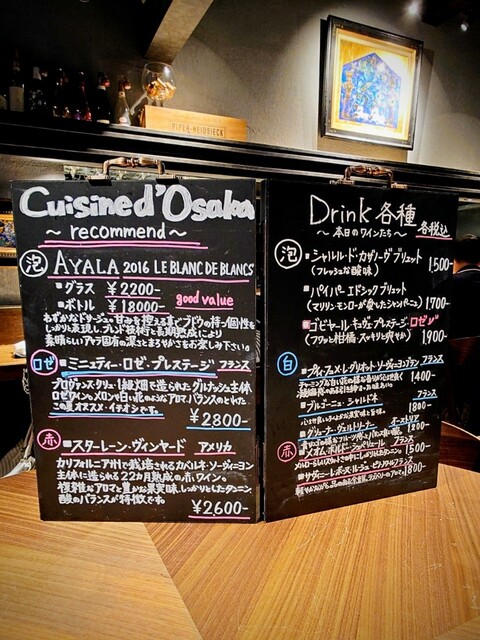 PIPER-HEIDSIECK
Cuisine d'Osaka
～ recommend ～
泡 AYALA 2016 LE BLANC DE BLANCS
■グラス ¥2200-
■ボトル ¥18000- good value
わずかなドサージュの甘みを控える事でブドウの持つ個性を
しっかりと表現し、ブレンド技術と長期熟成により
素晴らしいアヤラ固有の深さとまろやかさをお楽しみ下さい。
ロゼ ■ミニュティー・ロゼ・プレステージ フランス
プロヴァンス・クリュ・
畑で造られるグルナッシュ主体
ロゼワイン。メロンや白い花のようなアロマ、バランスのとれた
この夏オススメ・イチオシです。
¥2800-
赤 ■スターレーン・ヴィンヤード アメリカ
カリフォルニア州で栽培されるカベルネ・ソーヴィニヨン
主体に造られる22カ月熟成の赤ワイン。
複雑性なアロマと豊かな果実味、しっかりとしたタンニン、
酸のバランスが特徴です。
¥2600-
Drink 各種
～本日のワインたち～ 各税込
泡 ■シャルル・ド・カザノーヴ ブリュット
(フレッシュな酸味) 1500-
■パイパー エドシック ブリュット
(マリリンモンローが愛したシャンパーニュ) 1700-
■ゴビヤール キュヴェ プレステージ・ロゼ
(フワッと柑橘・スッキリ爽やか) 1900-
白 ■プティ・フュメ・レ・グリオット ソーヴィニヨンブラン フランス
1400-
■ブルゴーニュ・シャルドネ フランス
1800-
■グリューナ・ヴェルトリーナー オーストリア
赤 ■メオム・ボルドー・スペリュール フランス
1500-
フランス
1800-